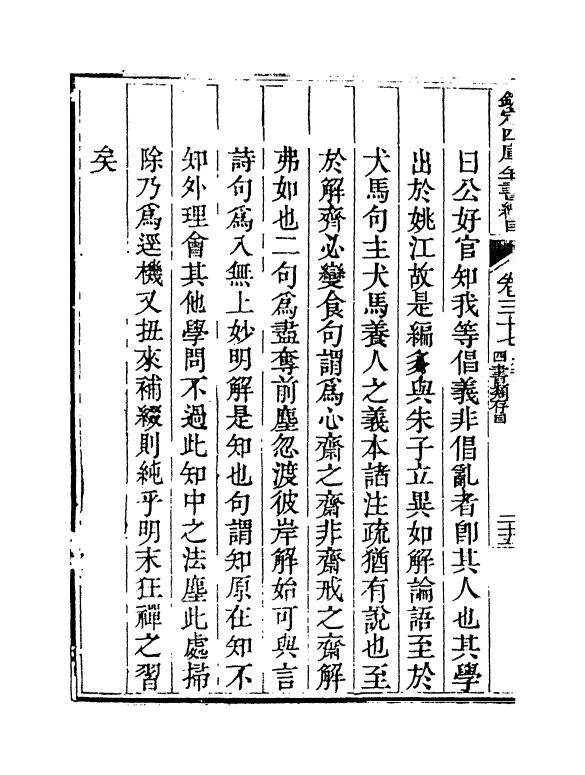 欽定四庫全書總目 卷三十七 四書類存目 二十五
曰公好官知我等倡義非倡亂者卽其人也其學
出於姚江故是編多與朱子立異如解論語至於
犬馬句主犬馬養人之義本諸注疏猶有說也至
於解齊必變食句謂爲心齋之齋非齋戒之齋解
弗如也二句爲盡奪前塵忽渡彼岸解始可與言
詩句爲入無上妙明解是知也句謂知原在知不
知外理會其他學問不過此知中之法塵此處掃
除乃爲逕機又扭來補綴則純乎明末狂禪之習
矣